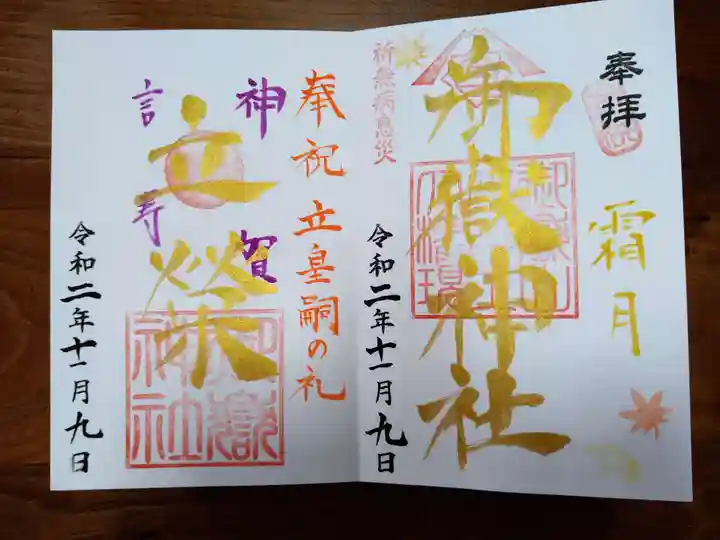 奉拝
霜月
御嶽神社
祈無病息災
令和二年十一月九日
奉祝 立皇嗣の礼
神賀
立榮
言寿
御嶽神社
令和二年十一月九日